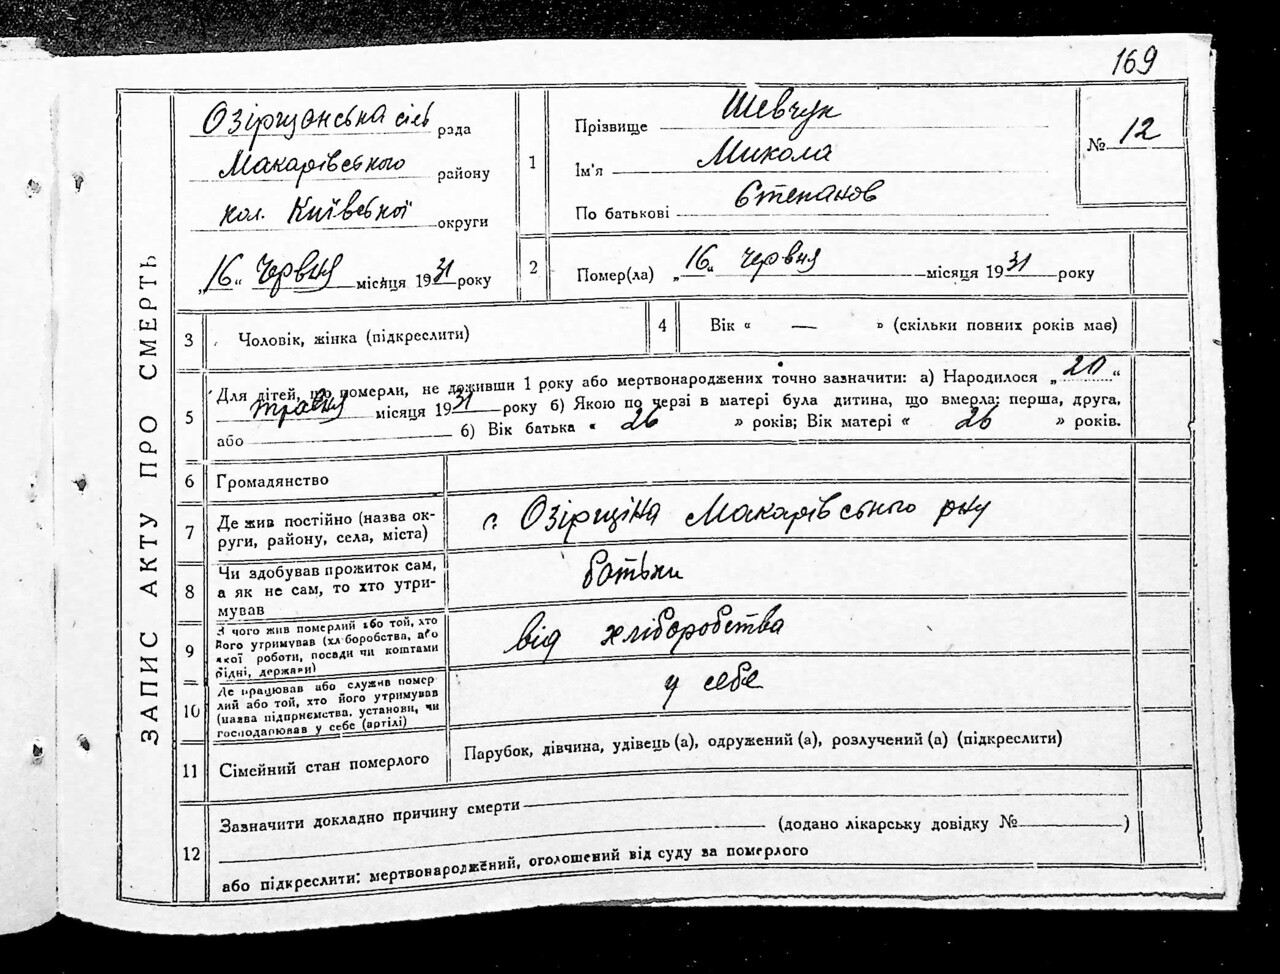 169
ЗАПИС АКТУ ПРО СМЕРТЬ
Озірщанська сіль рада
Макарівського району
кол. Київської округи
„16“ Червня місяця 1931 року
1
Прізвище Шевчук
Ім'я Микола
По батькові Степанов
№ 12
2
Помер(ла) „16“ червня місяця 1931 року
3
Чоловік, жінка (підкреслити)
4
Вік « — » (скільки повних років має)
5
Для дітей, що померли, не доживши 1 року або мертвонароджених точно зазначити: а) Народилося „20“
травня місяця 1931 року б) Якою по черзі в матері була дитина, що вмерла: перша, друга,
або б) Вік батька « 26 » років; Вік матері « 26 » років.
6
Громадянство
7
Де жив постійно (назва ок-
руги, району, села, міста)
с. Озірщина Макарівського р-ну
8
Чи здобував прожиток сам,
а як не сам, то хто утри-
мував
батьки
9
З чого жив померлий або той, хто
його утримував (хліборобства, або
якої роботи, посади чи коштами
рідні, держави)
від хліборобства
10
Де працював або служив помер
лий або той, хто його утримував
(назва підприємства, установи, чи
господарював у себе (артілі)
у себе
11
Сімейний стан померлого
Парубок, дівчина, удівець (а), одружений (а), розлучений (а) (підкреслити)
12
Зазначити докладно причину смерти
(додано лікарську довідку № )
або підкреслити: мертвонароджений, оголошений від суду за померлого